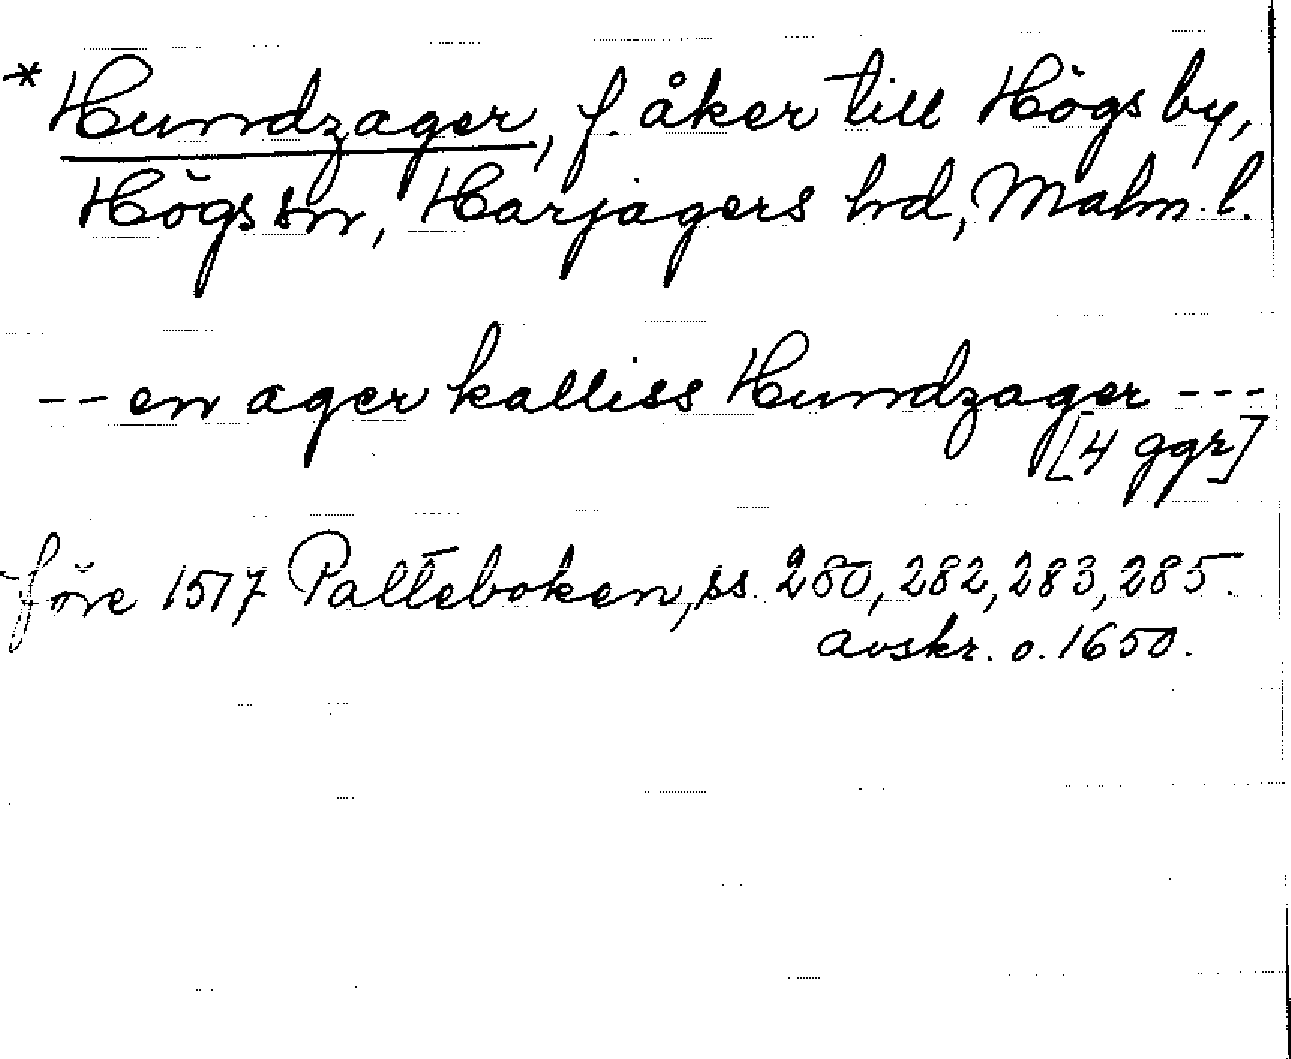 * Hundzager, f. åker till Högs by,
Högs sn, Harjagers hd, Malm. l.
-- en ager kalliss Hundzager ---
[4 ggr]
före 1517 Palteboken, ss. 280, 282, 283, 285.
avskr. o. 1650.